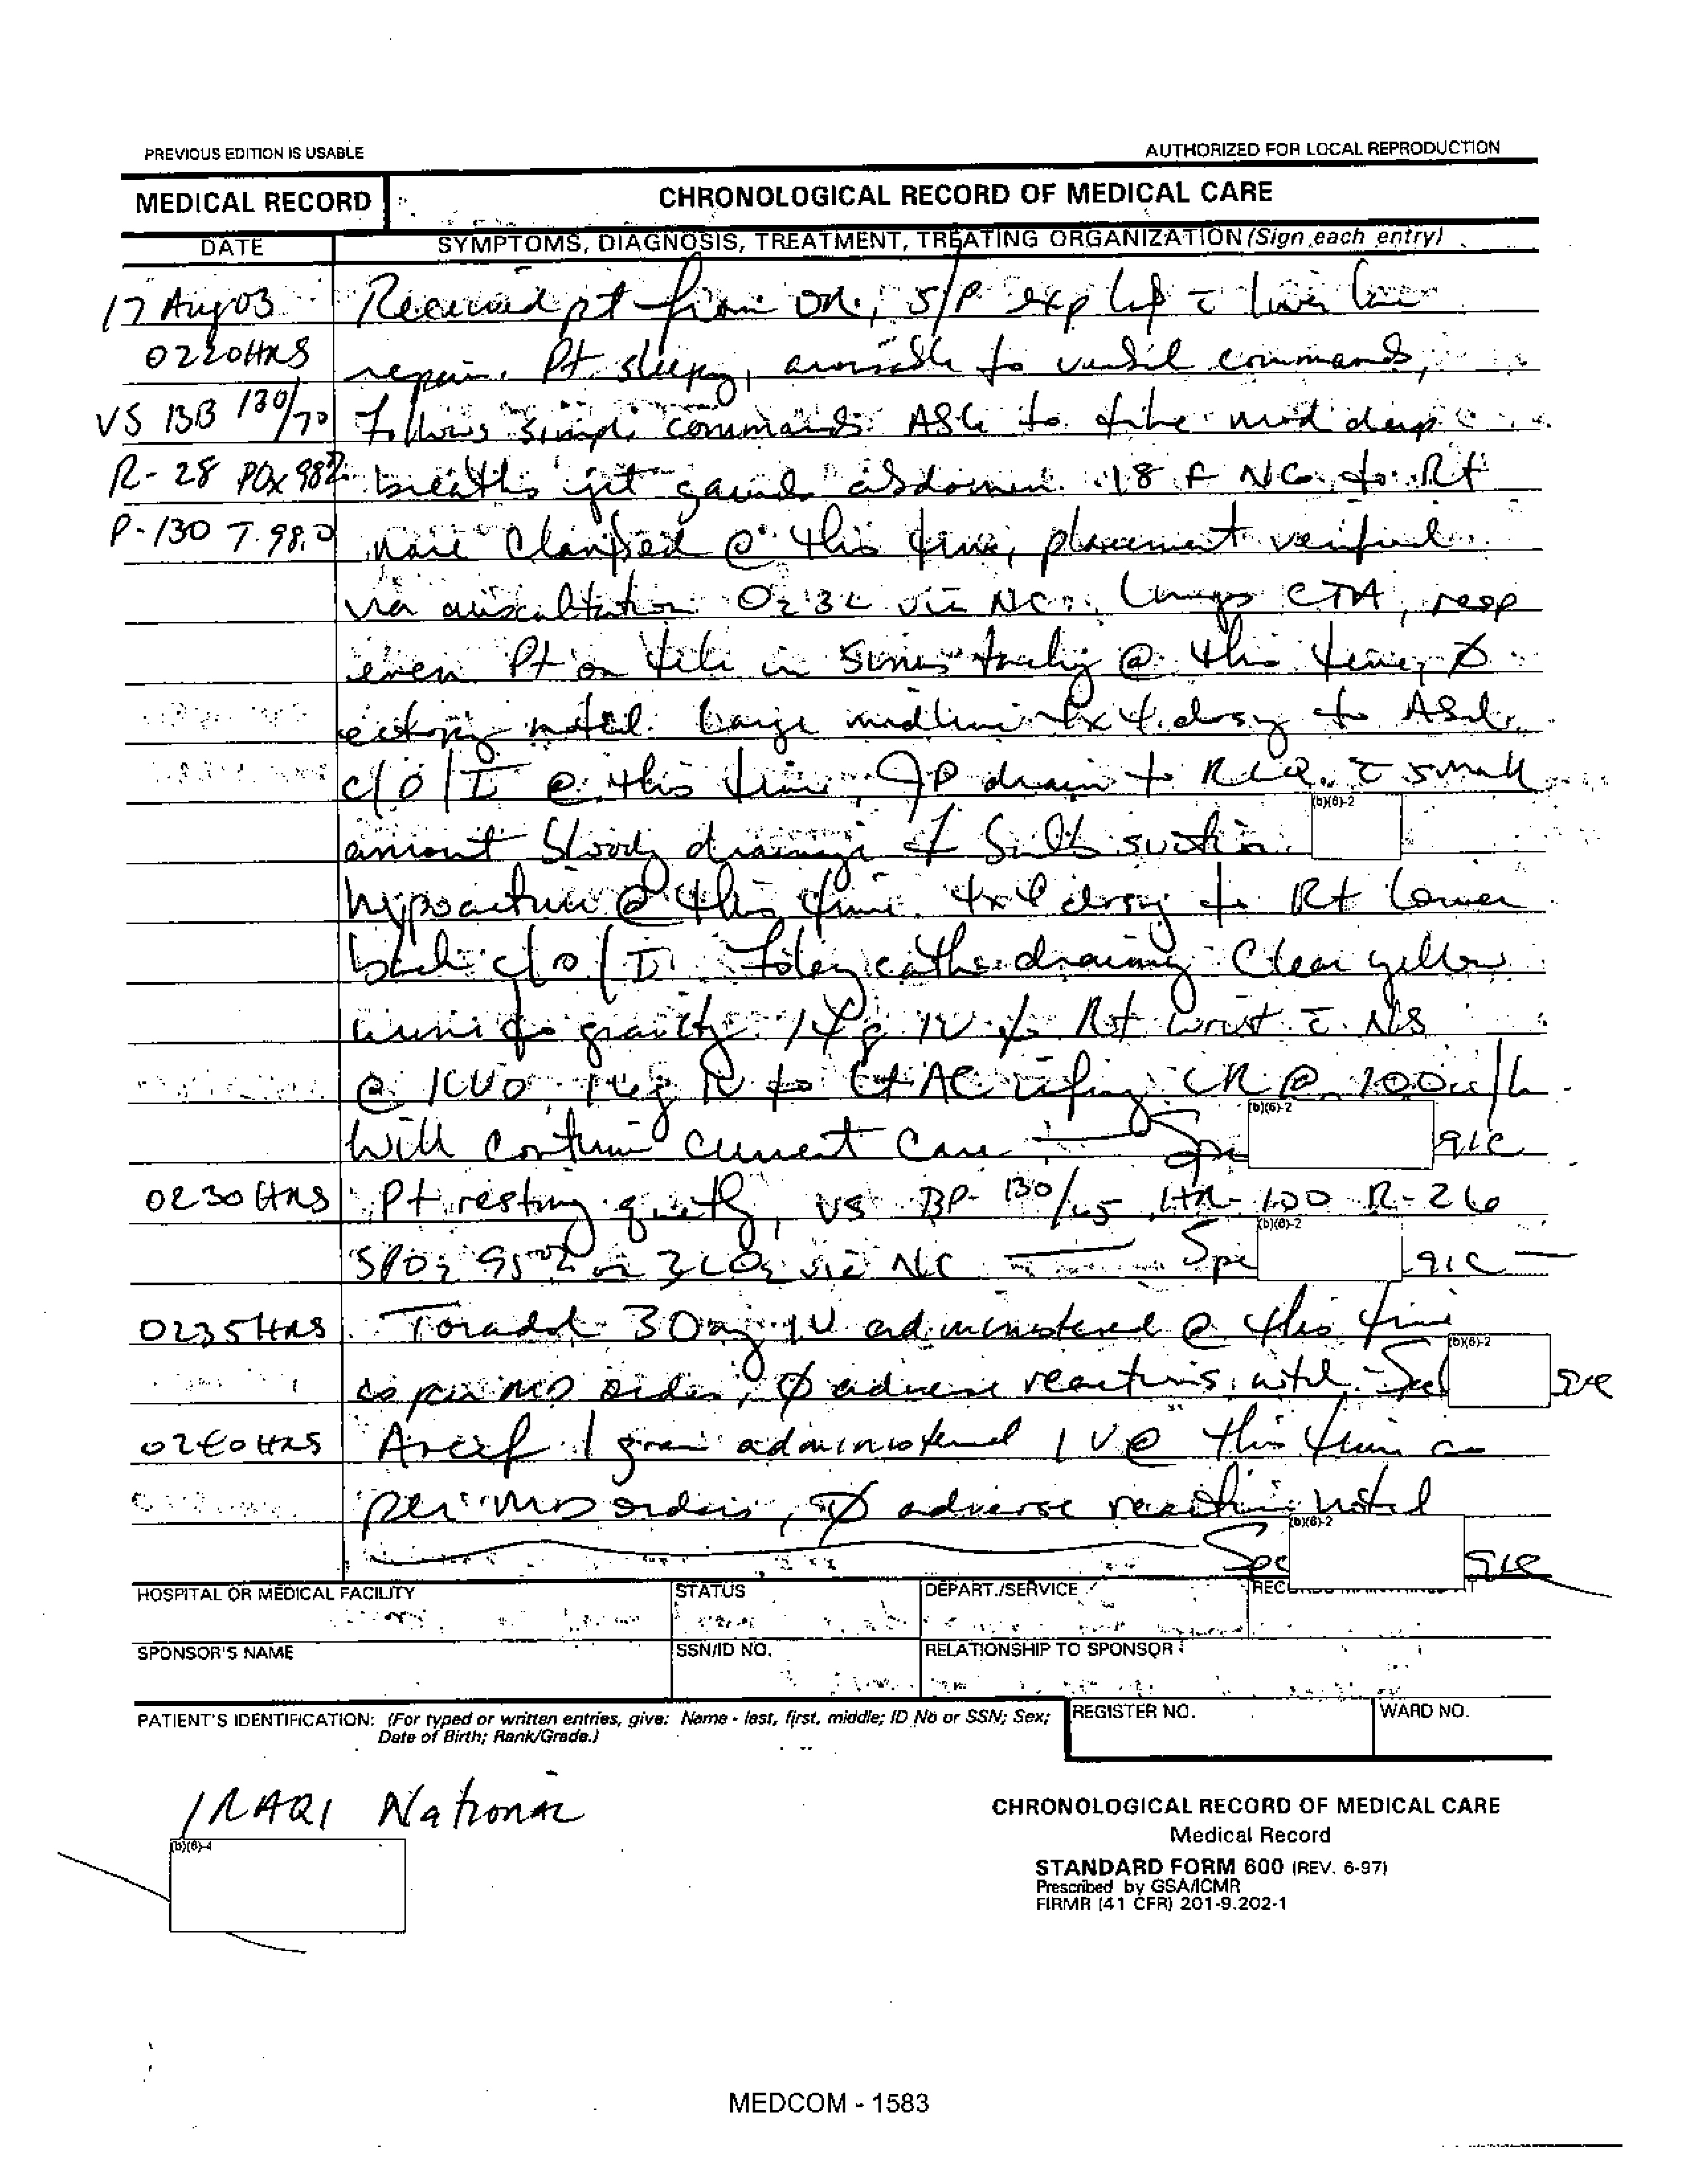 PREVIOUS EDITION IS USABLE
AUTHORIZED FOR LOCAL REPRODUCTION
MEDICAL RECORD
CHRONOLOGICAL RECORD OF MEDICAL CARE
DATE
SYMPTOMS, DIAGNOSIS, TREATMENT, TREATING ORGANIZATION (Sign each entry)
17 Aug 03 Received pt from OR, S/P exp lap c̄ liver lac
0220HRS repair. Pt. sleepy, arousable to verbal commands,
VS BP 130/70 follows simple commands. Able to take mod deep
R-28 POx 98% breaths yet guards abdomen. 18 F NG to Rt
P-130 T. 98.0 nare clamped @ this time, placement verified
via auscultation O2 3L via NC. Lungs CTA, resp
even Pt on tele in sinus tachy @ this time, Ø
ectopy noted. Large midline 4x4 drsg to Abd,
c/d/I @ this time. JP drain to RLQ c̄ small
amount bloody drainage to bulb suction.
(b)(6)-2
hypoactive @ this time. 4x4 drsg to Rt lower
back c/d/I. Foley cath draining Clear yellow
urine to gravity. 14g IV to Rt wrist c̄ NS
@ KVO. 14g IV to Lt AC infusing LR @ 100cc/h
(b)(6)-2
Will continue current care Spc 91C
0230HRS Pt resting quietly, VS BP- 130/65 HR- 100 R-26
(b)(6)-2
SPO2 95% on 3LO2 via NC Spc 91C
0235HRS Toradol 30mg IV administered @ this time
(b)(6)-2
as per MD order, Ø adverse reactions noted.
0240HRS Ancef 1 gram administered IV @ this time as
per MD orders, Ø adverse reaction noted
(b)(6)-2
Spc 91C
HOSPITAL OR MEDICAL FACILITY
STATUS
DEPART./SERVICE
SPONSOR'S NAME
SSN/ID NO.
RELATIONSHIP TO SPONSOR
PATIENT'S IDENTIFICATION: (For typed or written entries, give: Name - last, first, middle; ID No or SSN; Sex;
Date of Birth; Rank/Grade.)
REGISTER NO.
WARD NO.
IRAQI National
(b)(6)-4
CHRONOLOGICAL RECORD OF MEDICAL CARE
Medical Record
STANDARD FORM 600 (REV. 6-97)
Prescribed by GSA/ICMR
FIRMR (41 CFR) 201-9.202-1
MEDCOM - 1583